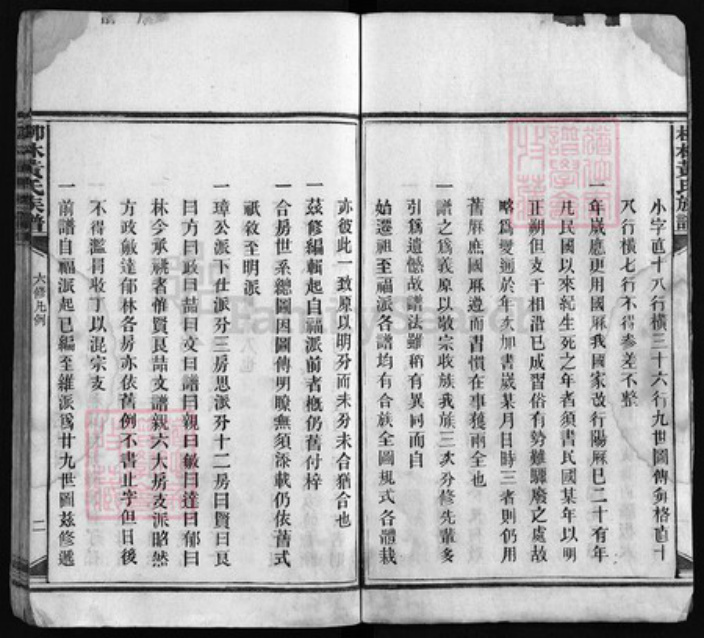 小字直十八行橫三十六行九世圖傳每格直十
八行橫七行不得參差不整
一年歲應更用國厤我國家改行陽厤已二十有年
凡民國以來紀生死之年者須書民國某年以明
正朔但支干相沿已成習俗有勢難驟廢之處故
略爲變通於年次加書歲某月日時三者則仍用
舊厤庶國厤遵而習慣在事獲兩全也
一譜之爲義原以敬宗收族我族三次分修先輩多
引爲遺憾故譜法雖稍有異同而自
始遷祖至福派各譜均有合族全圖規式各體裁
亦彼此一致原以明分而未分未合猶合也
一茲修編輯起自福派前者槪仍舊付梓
一合房世系總圖因圖傳明瞭無須添載仍依舊式
祇敘至明派
一璋公派下仕派分三房思派分十二房曰賢曰良
曰方曰政曰喆曰文曰譜曰親曰敏曰達曰郁曰
林今承祧者惟賢良喆文譜親六大房支派略然
方政敏達郁林各房亦依舊例不書止字但日後
不得濫冒收丁以混宗支
一前譜自福派起已編至維派爲廿九世圖茲修遞
柳林黃氏族譜
六修凡例
二
柳林黃氏族譜
FamilySearch